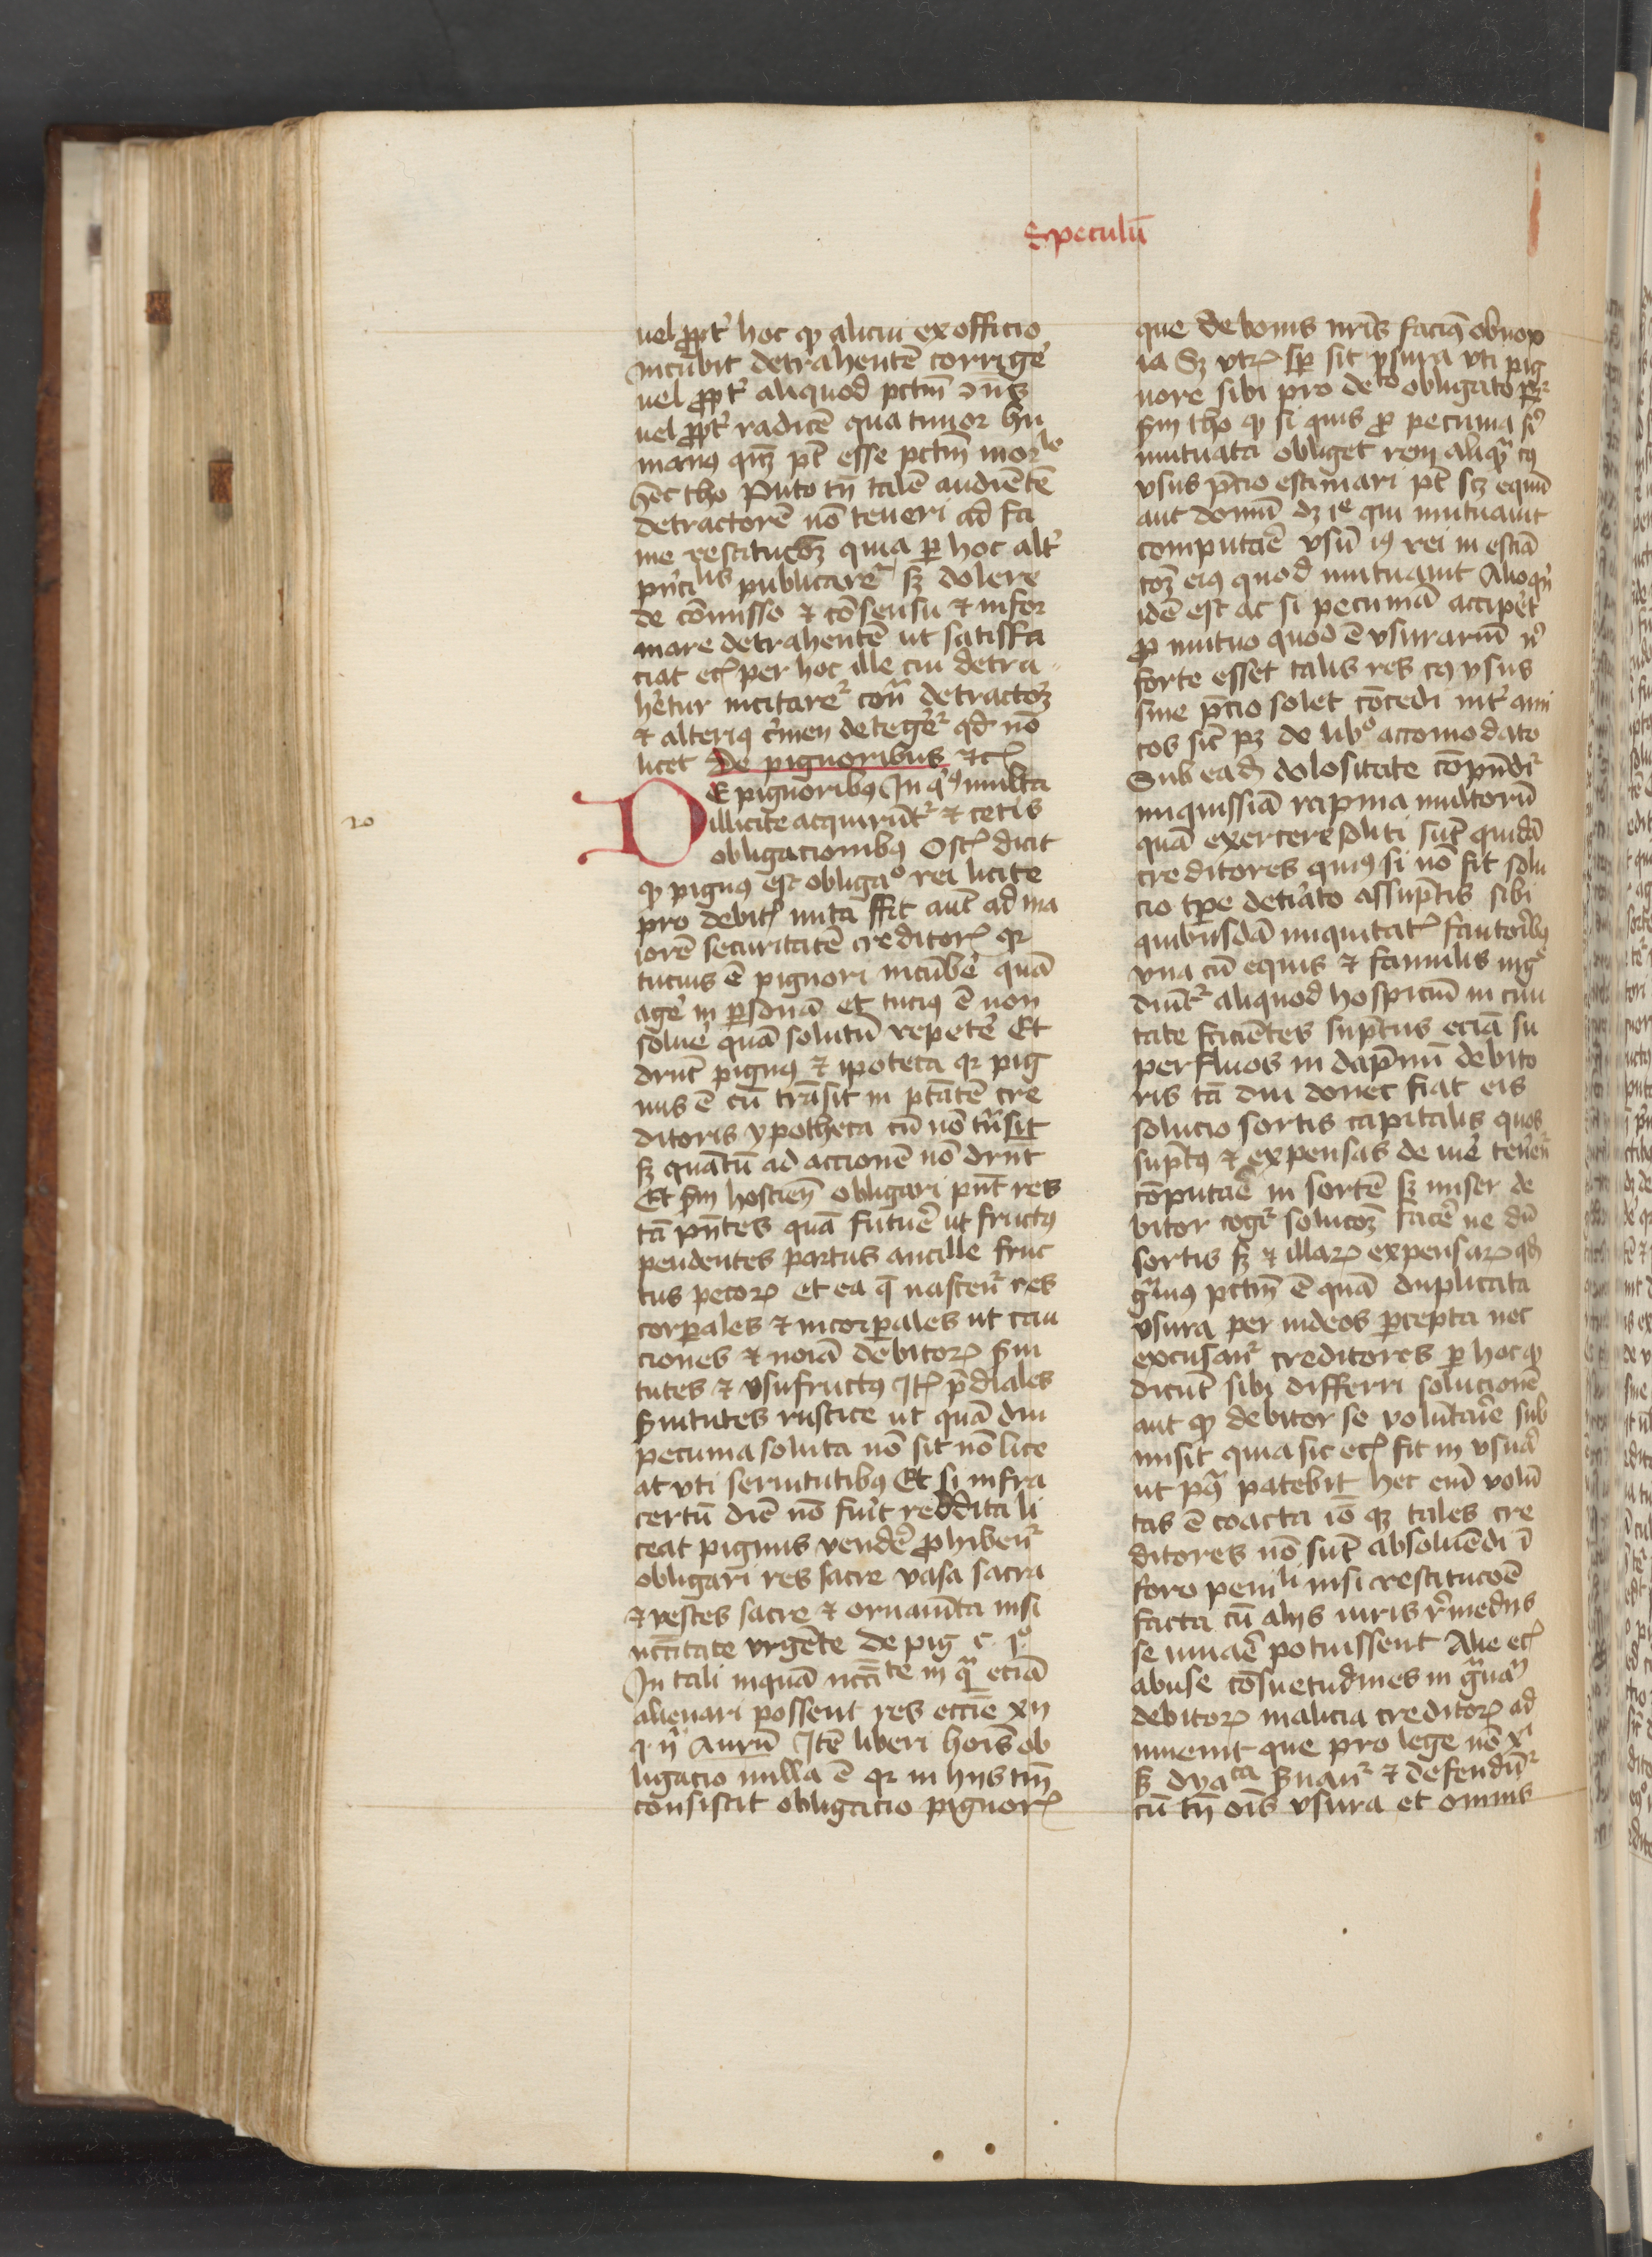 Speculū
uel ꝓpt̉ hoc ꝙ alicui ex officio
incūbit detrahentē corrige̓
uel ꝓpt̉ aliquod pctm̄
uel ꝓpt̉ radicē qua timor hu
manꝯ qn̄qꝫ pt̄ esse pctm̄ morˡᵉ
hec tho Puto tn̄ talē audiētē
detractorē nō teneri ad fa
me restitucōꝫ quia ꝑ hoc alt̉
publicareᷣ sꝫ dolere
de cōmisso ⁊ cōsensu ⁊ infor
mare detrahentē ut satisffa
ciat ecꝫ per hoc ille cui detra
hetur incitareᷣ cont̄ detractoꝫ
⁊ alteriꝯ c̓men detegereᷣ qd̓ nō
licet De pignoribus ⁊cꝫ
DE pignoribꝯ In qͥbꝯ multa
illicite acquirūtᷣ ⁊ ceteͥs
obligacionibꝯ Ostꝫ dicit
ꝙ pignꝯ est obligaᵒ rei licite
pro debitꝫ inita ffit aut̄ ad ma
iorē securitatē creditorꝝ qꝛ
tucius ē pignori incūbe̓ quā
age̓ in ꝑsonā et tuciꝯ ē non
solue̓ quā solutū repete̓ Et
drūt pignꝯ ⁊ ipoteca qꝛ pig
nus ē cū trāsit in ptātē cre
ditoris ypotheca cū nō trāsit
sꝫ quātū ad accionē nō drn̄t
Et sm̄ hostien̄ obligari pn̄t res
tā pn̄tes quā future̓ ut fructꝯ
pendentes partus ancille fruc
tus pecorꝝ et ea q̄ nascenᷣ res
corꝑales ⁊ incorꝑales ut cau
ciones ⁊ noīa debitorꝝ s̓ui
tutes ⁊ vsufructꝯ Itꝫ p̄diales
s̓uitutes rustice ut quādiu
pecunia soluta nō sit nō lice
at vti seruitutibꝯ Et si infra
certū diē nō fuit̉ reddita li
ceat pignus vende̓ ꝓhibenᷣ
obligari res sacre vasa sacra
⁊ vestes sacre ⁊ ornam̄ta nisi
nc̄citate vrgēte de pig c 1ᵒ
In tali inquā nc̄citᵗᵉ in qͣ eciā
alienari possent res eccīe xij
q ij Aurū Itē liberi hoīs ob
ligacio nulla ē qꝛ in hijs tm̄
consistit obligacio pignorꝝ
que de bonis nr̄is faciꝫ obnox
ia Sꝫ vtꝝ sꝑ sit vsura vti pig
nore sibi pro deᵗᵒ obligato
sm̄ tho ꝙ si quis ꝓ pecunia sͥ
mutuata obliget rem aliqͣ cꝯ
vsus p̄cio estimari pt̄ scꝫ equū
aut domū dꝫ ıᵉ qui mutuauit
computae̓ vsū iꝯ rei in estiā
coꝫ eiꝯ quod mutuauit Alioqͥn̄
idē est ac si pecuniā accipet̉
ꝓ mutuo quod ē vsurariū nͥ
forte esset talis res cꝯ vsus
sine p̄cio solet cōcedi int̉ ami
cos sic̄ pꝫ de libᵒ accomodato
Sub eadē dolositate cōpn̄diᷣ
iniquissiā rapina multorū
quā exercere soliti sūt quidā
creditores quiꝯ si nō fit solu
cio tꝑe det̓iato assūptis sibi
quibusdā iniquitatꝫ fautoribꝯ
vna cū equis ⁊ famulis ingͤ
diūtᷣ aliquod hospiciū in ciui
tate faciētes sūptus eciā su
perfluos in dāpnū debito
ris tā diu donec fiat eis
solucio sortis capitalis quos
sūptꝯ ⁊ expensas de iuͤ tenenᷣ
cōputae̓ in sortē sꝫ miser de
bitor cogiᷣ solucōꝫ face̓ ne dū
sortis sꝫ ⁊ illarꝝ expensarꝝ qd̓
gͣuiꝯ pctm̄ ē quā duplicata
vsura per iudeos ꝑcepta nec
excusanᷣ creditores ꝑ hoc ꝙ
dicūt sibi differri solucionē
aut ꝙ debitor se volūtarie sub
misit quia sic ecꝫ fit in vsura
ut pͣ patebit hec em̄ volū
tas ē coacta iō qꝫ tales cre
ditores nō sūt absoluēdi ī
foro peniˡⁱ nisi restitucōē
facta cū alijs iuris remedijs
se iuuae̓ potuissent Alie ecꝫ
abuse cōsuetudines in gͣuam̄
debitorꝝ malicia creditorꝝ ad
inuenit que pro lege nō xͥ
sꝫ dyaᶜᵃ s̓uanᷣ ⁊ defendūᷣ
cū tn̄ oīs vsura et omnis